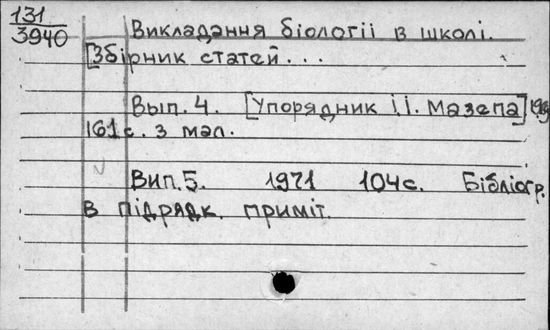 131
3940
Викладання біологіі в школі.
[Збірник статей...
Вып. 4. [Упорядник І.І. Мазепа]
161с. з мал.
Вип. 5. 1971 104с. Бібліогр.
в підрядк. приміт.